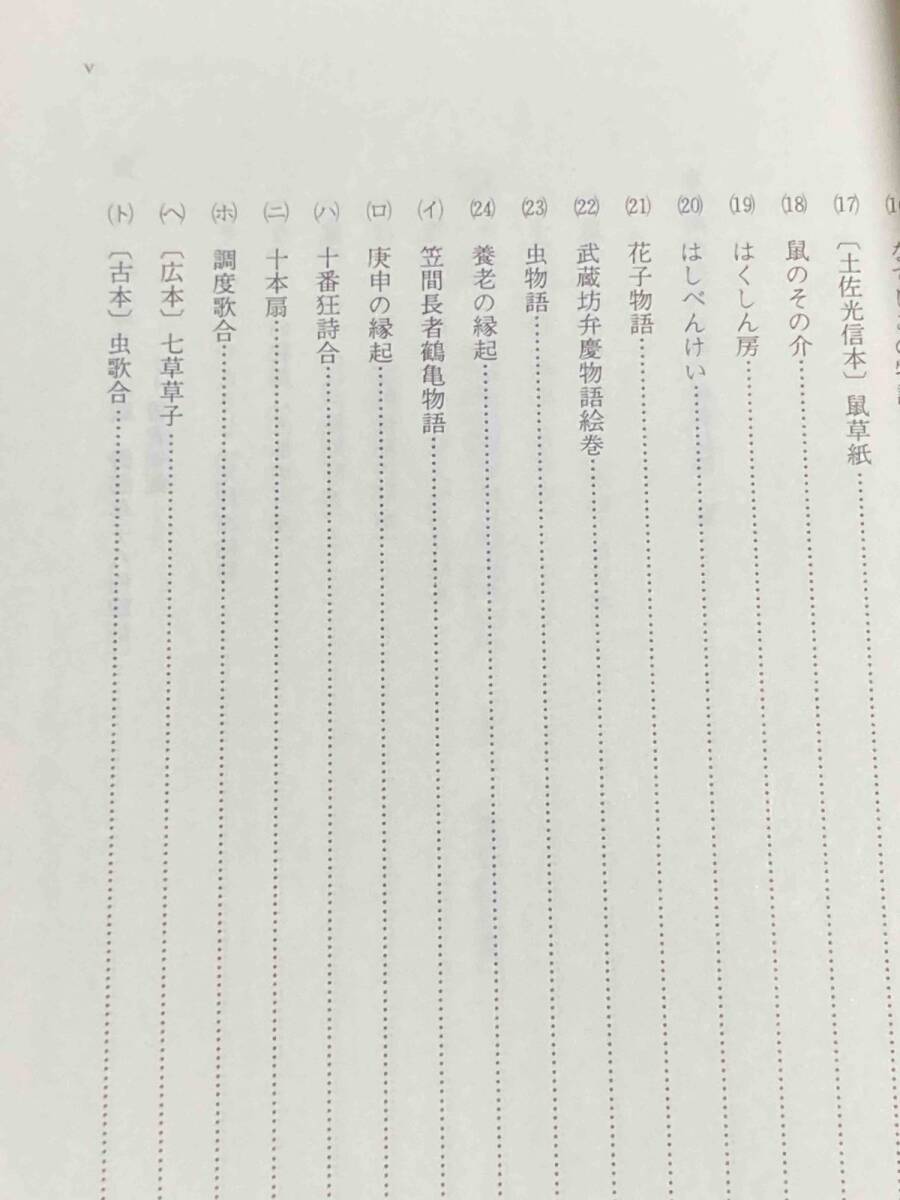 ⒄ 〔土佐光信本〕鼠草紙……
⒅ 鼠のその介……
⒆ はくしん房……
⒇ はしべんけい……
(21) 花子物語……
(22) 武蔵坊弁慶物語絵巻……
(23) 虫物語……
(24) 養老の縁起……
(イ) 笠間長者鶴亀物語……
(ロ) 庚申の縁起……
(ハ) 十番狂詩合……
(ニ) 十本扇……
(ホ) 調度歌合……
(ヘ) 〔広本〕七草草子……
(ト) 〔古本〕虫歌合……
v